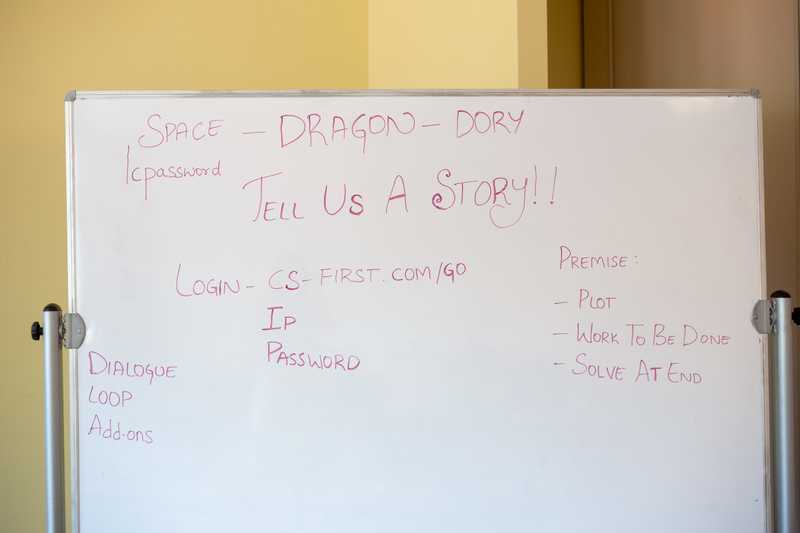 SPACE - DRAGON - DORY
1cpassword
TELL US A STORY!!
LOGIN - CS-FIRST.COM/GO
IP
PASSWORD
PREMISE:
- PLOT
- WORK TO BE DONE
- SOLVE AT END
DIALOGUE
LOOP
Add-ons